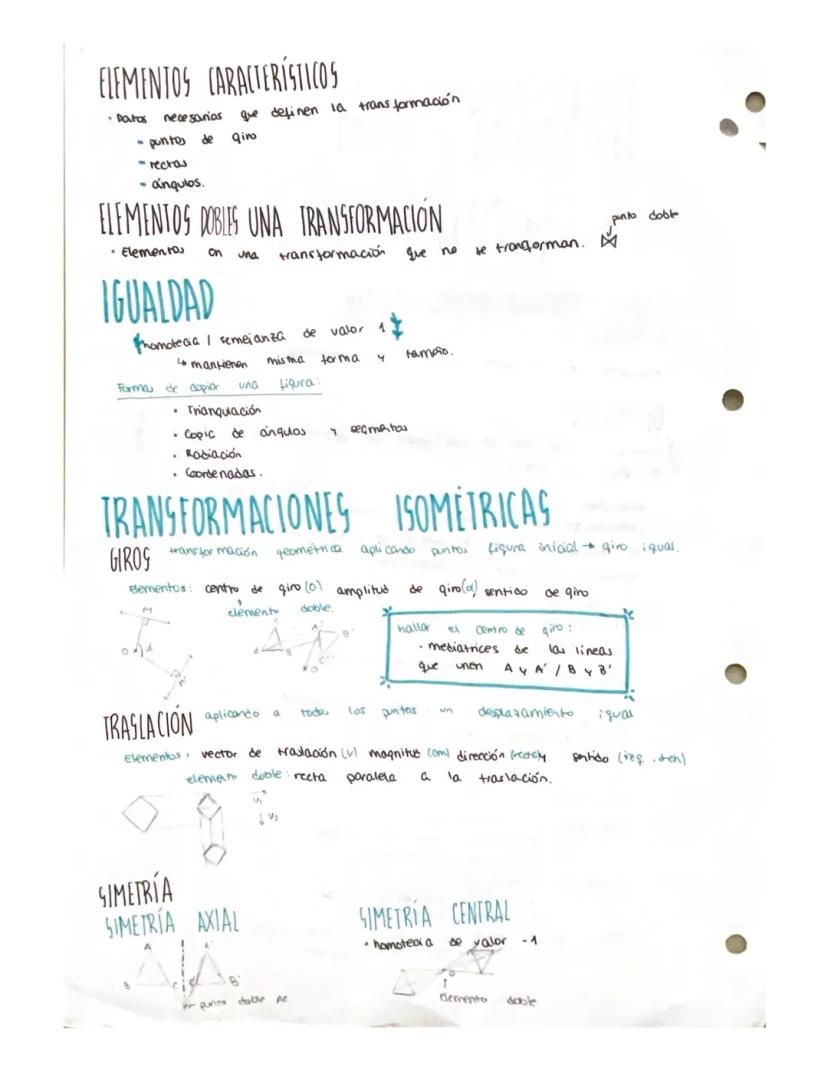 ELEMENTOS CARACTERÍSTICOS
• Datos necesarios que definen la transformación
• puntos de giro
• rectas
• ángulos.
ELEMENTOS DOBLES UNA TRANSFORMACIÓN
punto doble
• Elementos en una transformación que no se transforman.
IGUALDAD
homotecia / semejanza de valor 1
↳ mantienen misma forma y tamaño.
Formas de copiar una figura:
• Triangulación
• Copia de ángulos y segmentos
• Radiación
• Coordenadas.
TRANSFORMACIONES ISOMÉTRICAS
GIROS transformación geométrica aplicando puntos figura inicial → giro igual.
Elementos: centro de giro (O) amplitud de giro (α) sentido de giro
elemento doble.
M
O α
A A' B B' C'
O
hallar el centro de giro:
• mediatrices de las líneas
que unen A y A' / B y B'
TRASLACIÓN aplicando a todos los puntos un desplazamiento igual
Elementos: vector de traslación (v) magnitud (cm) dirección (recta) y sentido (izq. dch)
elemento doble: recta paralela a la traslación.
V1
↓ V2
SIMETRÍA
SIMETRÍA AXIAL
A A'
B C C' B'
punto doble
SIMETRÍA CENTRAL
• homotecia de valor -1
O
elemento doble